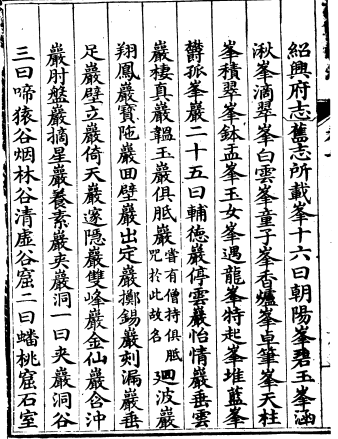 紹興府志舊志所載峯十六曰朝陽峯碧玉峯涵
湫峯滴翠峯白雲峯童子峯香爐峯卓筆峯天柱
峯積翠峯鉢盂峯玉女峯遇龍峯特起峯堆藍峯
欝孤峯巖二十五曰輔德巖停雲巖怡情巖垂雲
巖棲真巖韞玉巖俱胝巖嘗有僧持俱胝咒於此故名廻波巖
翔鳳巖寶陁巖田壁巖出定巖擲錫巖刻漏巖垂
足巖壁立巖倚天巖邃隱巖雙峰巖金仙巖含沖
巖肘盤巖摘星巖養素巖夾巖洞一曰夾巖洞谷
三曰啼猿谷烟林谷清虛谷窟二曰蟠桃窟石室